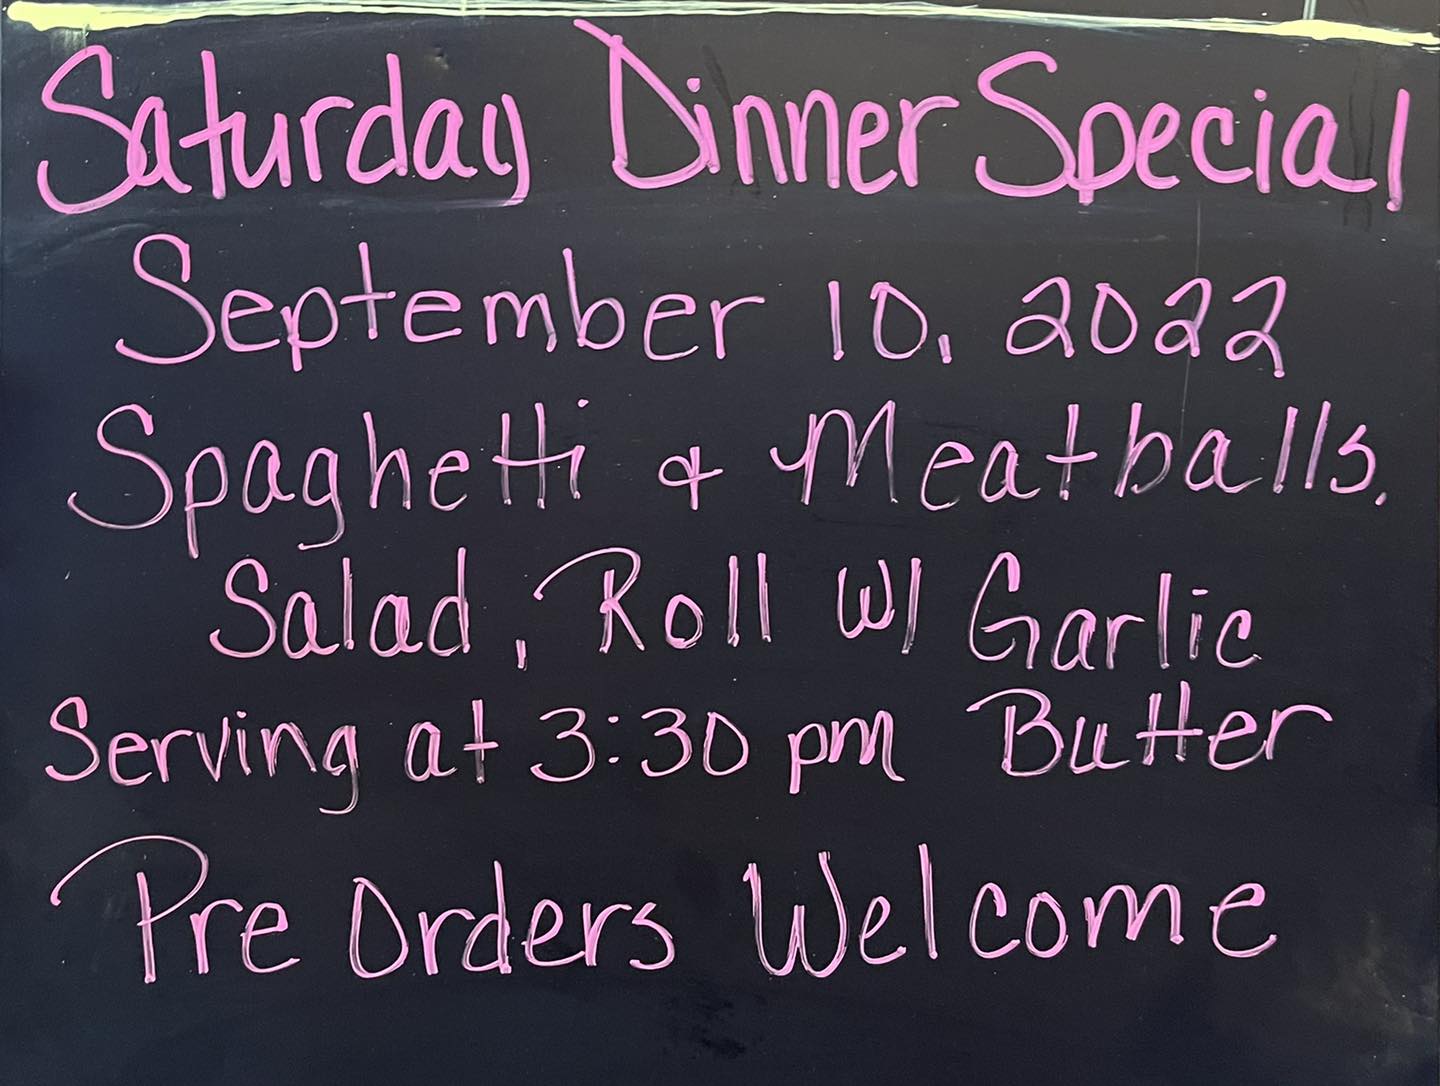 Saturday Dinner Special
September 10, 2022
Spaghetti & Meatballs,
Salad, Roll w/ Garlic
Serving at 3:30 pm Butter
Pre Orders Welcome